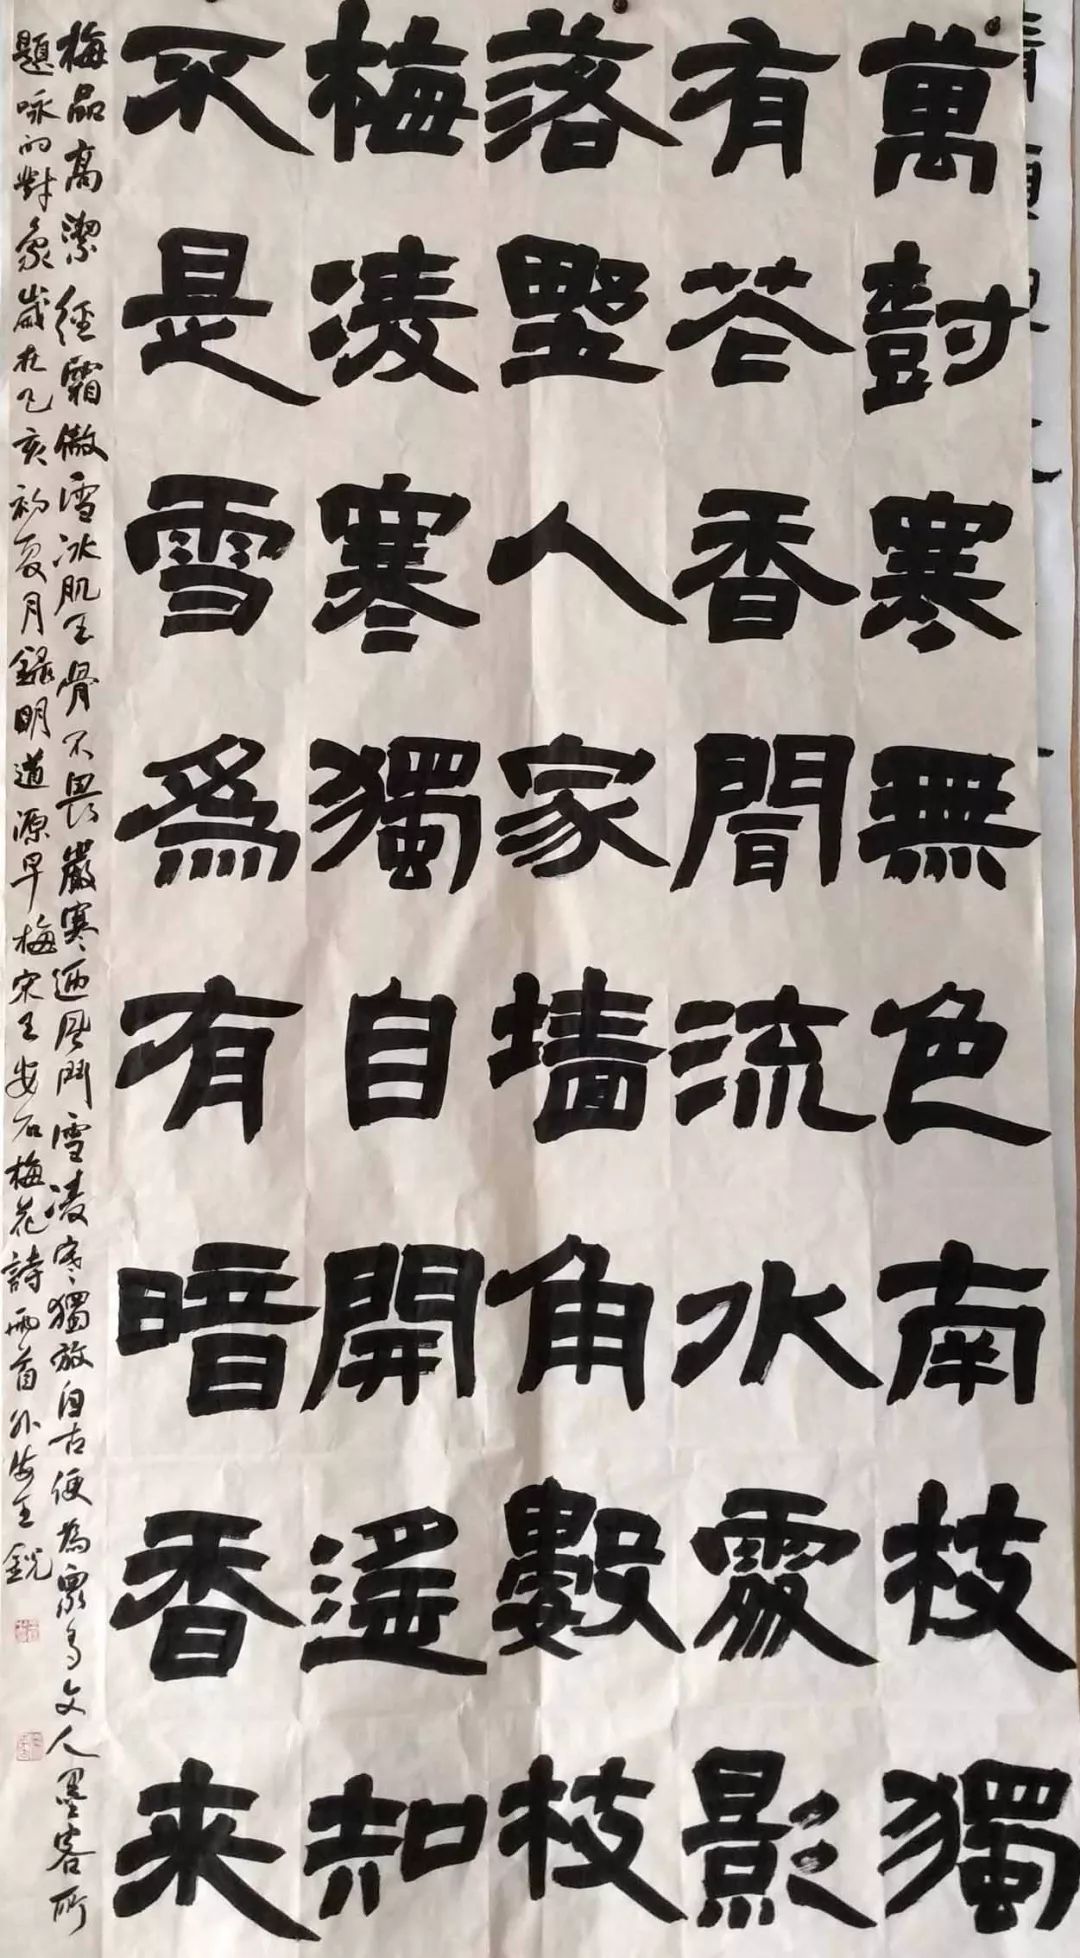 萬尌寒無色南枝獨
有花香聞流水處影
落野人家墻角數枝
梅凌寒獨自開遥知
不是雪爲有暗香来
梅品高潔經霜傲雪冰肌玉骨不畏嚴寒迎風鬥雪凌寒獨放自古便為衆多文人墨客所
題咏的對象歲在己亥初夏月錄明道源早梅宋王安石梅花詩兩首外海王銳